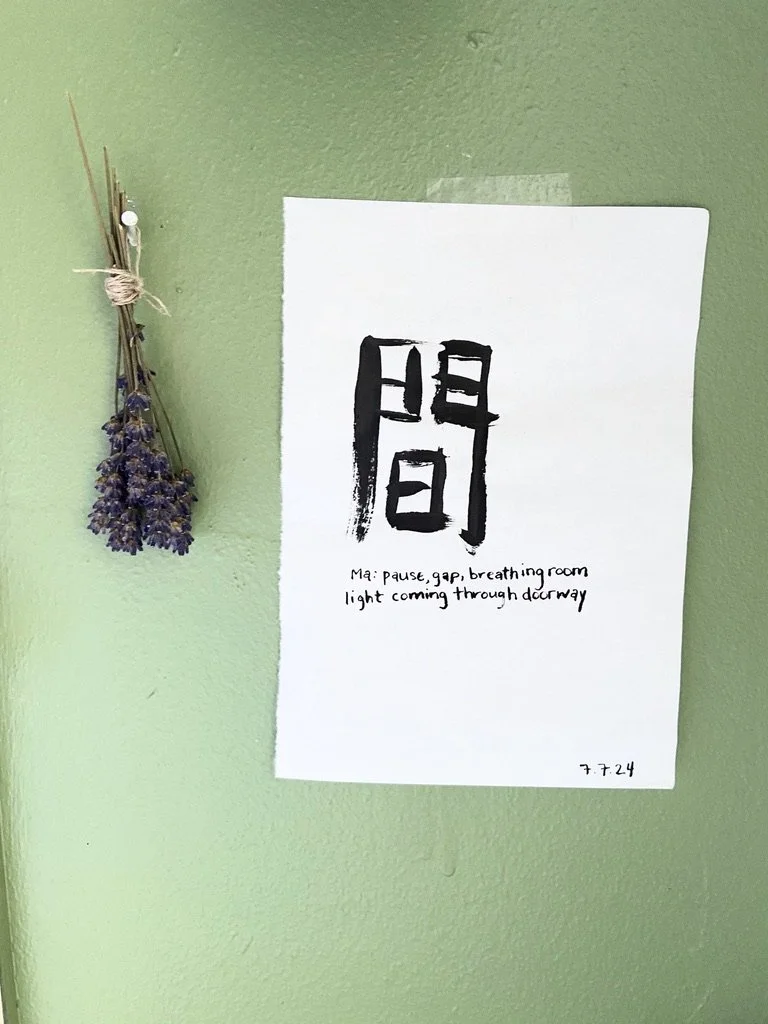 間
Ma: pause, gap, breathing room
light coming through doorway
7.7.24